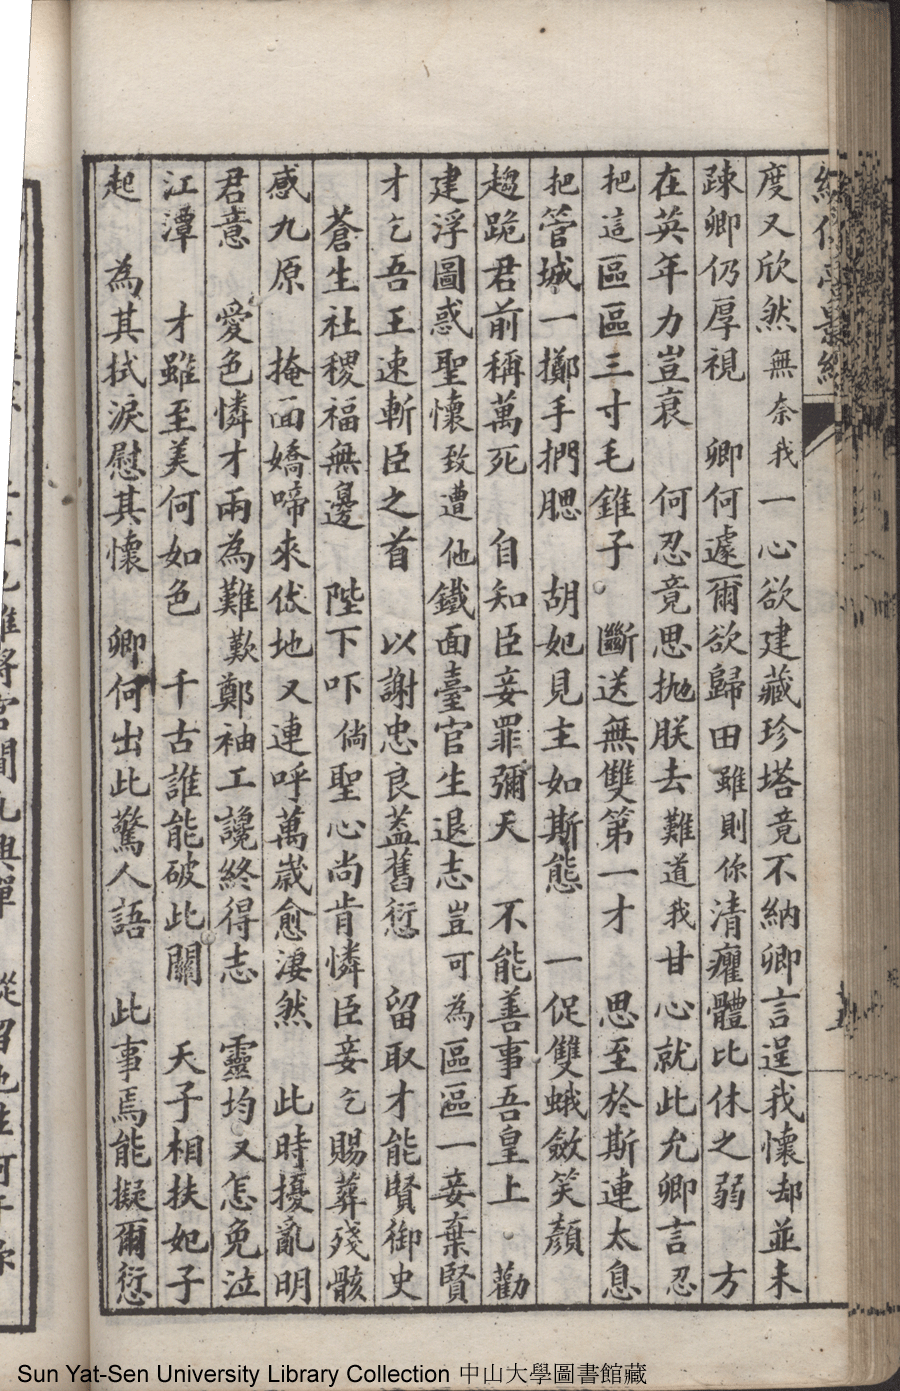 度又欣然無奈我一心欲建藏珍塔竟不納卿言逞我懷却並未
疎卿仍厚視　卿何遽爾欲歸田雖則你清癯體比休之弱　方
在英年力豈衰　何忍竟思拋朕去難道我甘心就此允卿言忍
把這區區三寸毛錐子。斷送無雙第一才　思至於斯連太息
把管城一擲手捫腮　胡妃見主如斯態　一促雙蛾斂笑顏
趨跪君前稱萬死　自知臣妾罪彌天　不能善事吾皇上。勸
建浮圖惑聖懷致遭他鐵面臺官生退志豈可為區區一妾棄賢
才乞吾王速斬臣之首　以謝忠良蓋舊愆　留取才能賢御史
蒼生社稷福無邊　陛下吓倘聖心尚肯憐臣妾乞賜葬殘骸
感九原　掩面嬌啼來伏地又連呼萬歲愈淒然　此時擾亂明
君意　愛色憐才兩為難歎鄭袖工讒終得志　靈均又怎免泣
江潭　才雖至美何如色　千古誰能破此關　天子相扶妃子
起　為其拭淚慰其懷　卿何出此驚人語　此事焉能擬爾愆
Sun Yat-Sen University Library Collection 中山大學圖書館藏